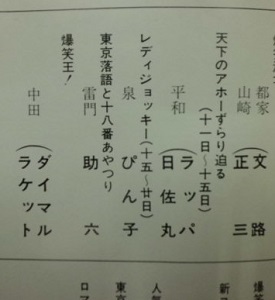 都家 文路
山崎 正三
天下のアホーずらり迫る
(十一日〜十五日)
平和 ラッパ
日佐丸
レディジョッキー(十五〜廿日)
泉 ぴん子
東京落語と十八番あやつり
雷門 助六
爆笑王!
中田 ダイマル
ラケット
爆笑
新ス
人気
東京
ロマ